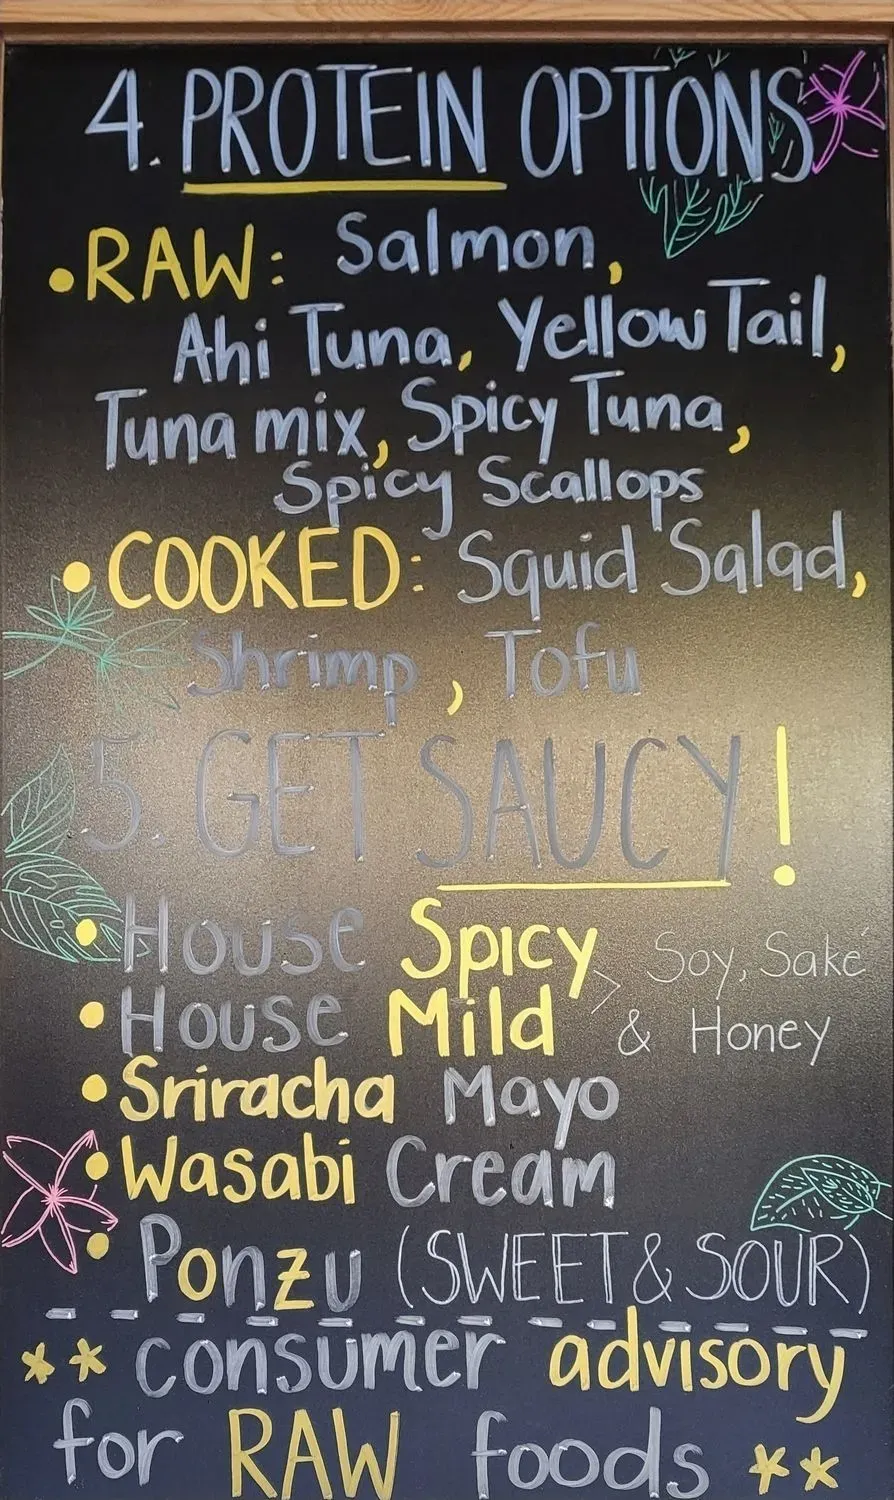 4. PROTEIN OPTIONS
• RAW: Salmon,
Ahi Tuna, Yellow Tail,
Tuna mix, Spicy Tuna,
Spicy Scallops
• COOKED: Squid Salad,
Shrimp, Tofu
5. GET SAUCY!
• House Spicy > Soy, Saké
• House Mild & Honey
• Sriracha Mayo
• Wasabi Cream
• Ponzu (SWEET & SOUR)
** consumer advisory
for RAW foods **